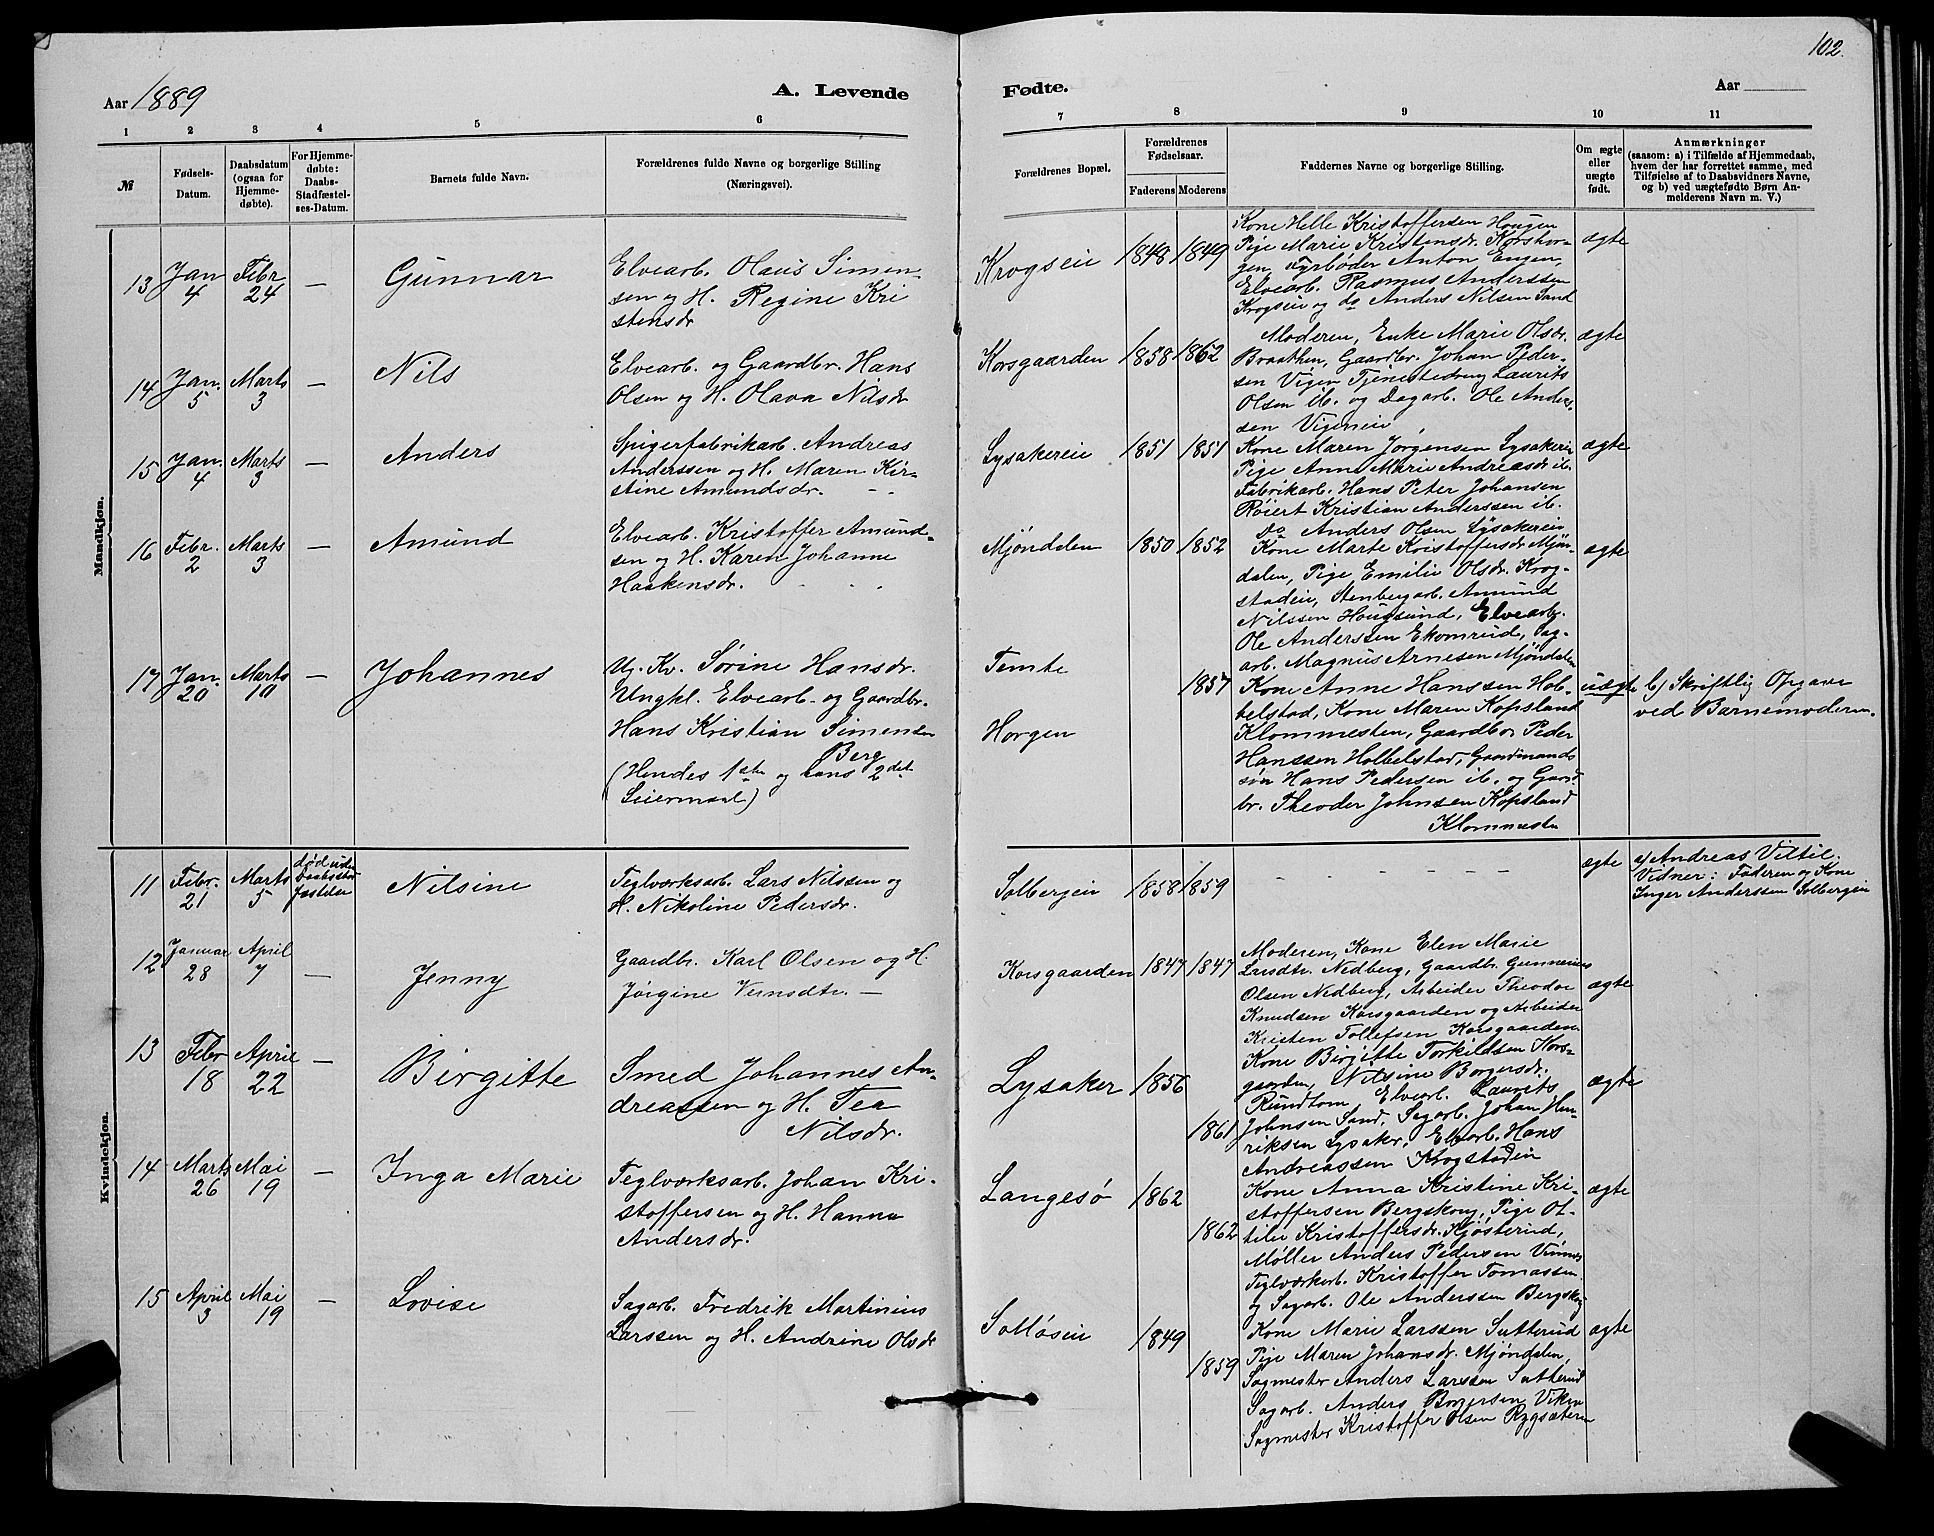 102.
Aar 1889
A. Levende
Fødte.
Aar
1 2 3 4 5 6 7 8 9 10 11
№
Fødsels-Datum.
Daabsdatum (ogsaa for Hjemme-døbte).
For Hjemme-døbte: Daabs-Stadfæstel-ses-Datum.
Barnets fulde Navn.
Forældrenes fulde Navne og borgerlige Stilling (Næringsvei).
Forældrenes Bopæl.
Forældrenes Fødselsaar.
Faderens Moderens
Faddernes Navne og borgerlige Stilling.
Om ægte eller uægte født.
Anmærkninger
(saasom: a) i Tilfælde af Hjemmedaab,
hvem der har forrettet samme, med
Tilføielse af to Daabsvidners Navne,
og b) ved uægtefødte Børn An-
melderens Navn m. V.)
Mandkjøn.
13 Jan 4 Febr 24 — Gunnar
Elvearb. Olaus Simen-
sen og H. Regine Kri
stensdr
Krogseie 1848 1849
Kone Helle Kristoffersen Hougen
Pige Marie Kristensdr. Korshav-
gen, Fyrbøder Anton Engen,
Elvearb. Rasmus Anderssen
Krogseie og do Anders Nilsen Sand
ægte
14 Jan. 5 Marts 3 — Nils
Elvearb. og Gaardbr. Hans
Olsen og H. Olava Nilsdr
Korsgaarden 1858 1862
Moderen, Enke Marie Olsdr.
Braathen, Gaardbr. Johan Peder-
sen Vigen Tjenestedreng Laurits
Olsen ib. og Dagarb. Ole Ander-
sen Vigeneie
ægte
15 Jan. 4 Marts 3 — Anders
Spigerfabrikarb. Andreas
Anderssen og H. Maren Kir-
stine Amundsdr.
Lysakereie 1851 1851
Kone Maren Jørgensen Lysakerie
Pige Anne Marie Andreasdr ib.
Fabrikarb. Hans Peter Johansen
Røiert Kristian Anderssen ib.
do Anders Olsen Lysakereie
ægte
16 Febr. 2 Marts 3 — Amund
Elvearb. Kristoffer Amund-
sen og H. Karen Johanne
Haakensdr.
Mjøndalen 1850 1852
Kone Marte Kristoffersdr Mjøn-
dalen, Pige Emilie Olsdr. Krog-
stadeie, Stenbergarb. Amund
Nilssen Hougsund, Elvearb.
Ole Anderssen Ekornrud, Sag-
arb. Magnus Arnesen Mjøndalen
ægte
17 Jan. 20 Marts 10 — Johannes
Ug. Kv. Sørine Hansdr.
Ungkl. Elvearb. og Gaardbr.
Hans Kristian Simensen
Berg
(Hendes 1ste og hans 2det
Leiermaal)
Temte
Horgen
1857
Kone Anne Hanssen Hob-
belstad, Kone Maren Kopsland
Klommesten, Gaardbr Peder
Hanssen Hobbelstad, Gaardmands
søn Hans Pedersen ib. og Gaard
br. Theodor Johnsen Kopsland
Klommesten
uægte
b) Skriftlig Opgave
ved Barnemoderen.
Kvindekjøn.
11 Febr. 21 Marts 5
død uden
Daabsstad
fæstelse
Nilsine
Teglværksarb. Lars Nilssen og
H. Nikoline Pedersdr.
Solbergeie 1858 1859
— — — — — —
ægte
a) Andreas Viltil.
Vidner: Faderen og Kone
Inger Anderssen Solbergeie
12 Januar 28 April 7 — Jenny
Gaardbr. Karl Olsen og H.
Jørgine Vernsdtr. —
Korsgaarden 1847 1847
Moderen, Kone Elen Marie
Larsdtr. Nedberg, Gaardbr. Gunnerius
Olsen Nedberg, Arbeider Theodor
Knudsen Korsgaarden og Arbeider
Kristen Tollefsen Korsgaarden
ægte
13 Febr 18 April 22 — Birgitte
Smed Johannes An-
dreassen og H. Tea
Nilsdr.
Lysaker 1856
1861
Kone Birgitte Torkildsen Kors-
gaarden, Nilsine Borgersdr.
Rundtom, Elvearb. Laurits
Johnsen Sand, Sagarb. Johan Hen-
riksen Lysaker, Elvearb. Hans
Andreassen Krogstadeie
ægte
14 Marts 26 Mai 19 — Inga Marie
Teglværksarb. Johan Kri-
stoffersen og H. Hanna
Andersdr.
Langesø 1862
1862
Kone Anna Kristine Kri-
stoffersen Bergskog, Pige Ot-
tilie Kristoffersdr. Kjøsterud,
Møller Anders Pedersen Vinnes
Teglværkarb. Kristoffer Tomassen
og Sagarb. Ole Anderssen Bergskog
ægte
15 April 3 Mai 19 — Lovise
Sagarb. Fredrik Martinius
Larssen og H. Andrine Olsdr
Solløseie 1849
1859
Kone Marie Larssen Sutterud
Pige Maren Johansdr. Mjøndalen,
Sagmester Anders Larssen Sutterud
Sagarb. Anders Borgersen Viken
Sagmester Kristoffer Olsen Rygsæteren
ægte